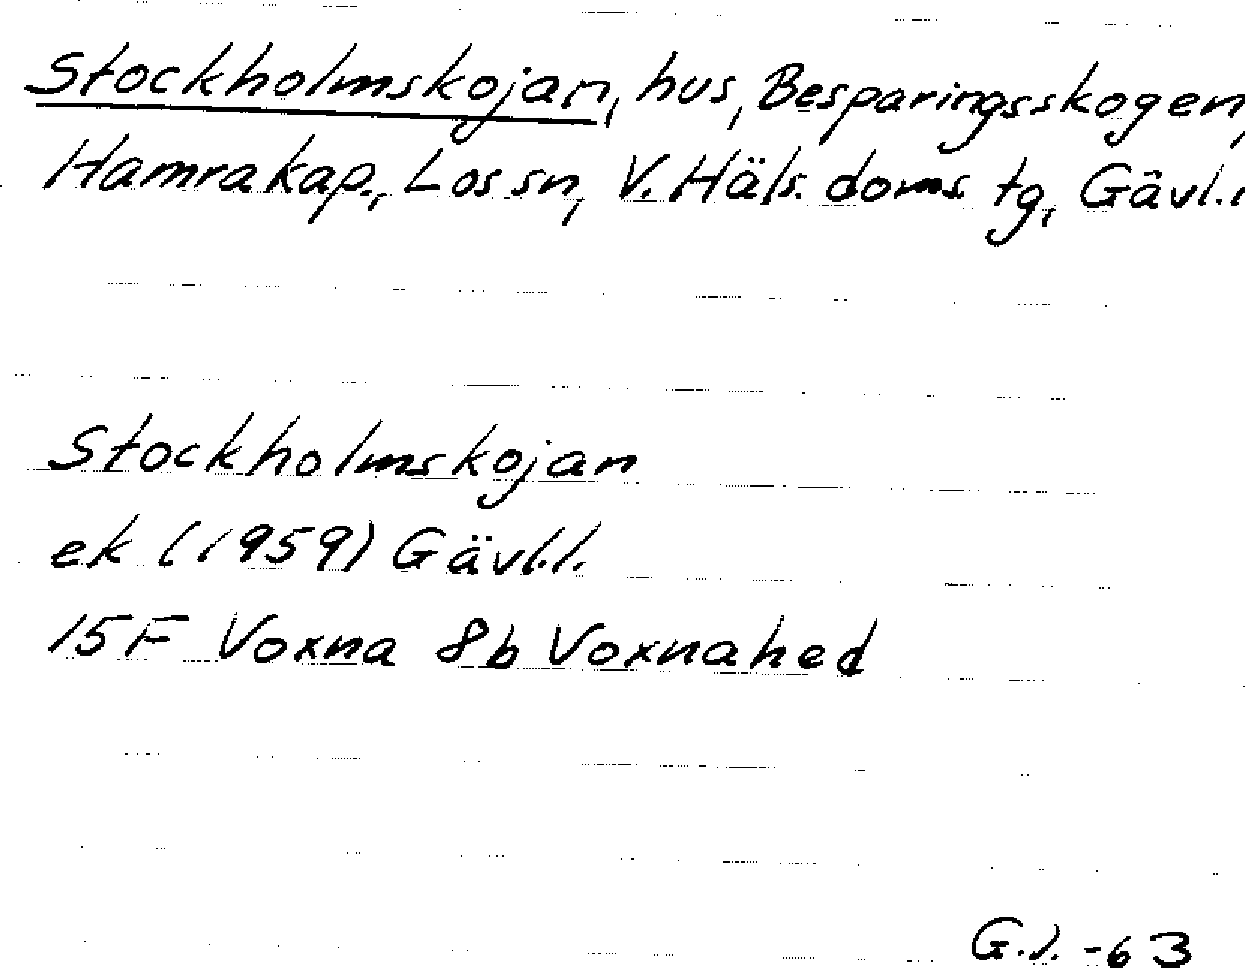 Stockholmskojan, hus, Besparingsskogen,
Hamra kap., Los sn, V. Häls. doms tg, Gävl.l
Stockholmskojan
ek (1959) Gävl.l.
15F Voxna 8b Voxnahed
G.J. -63